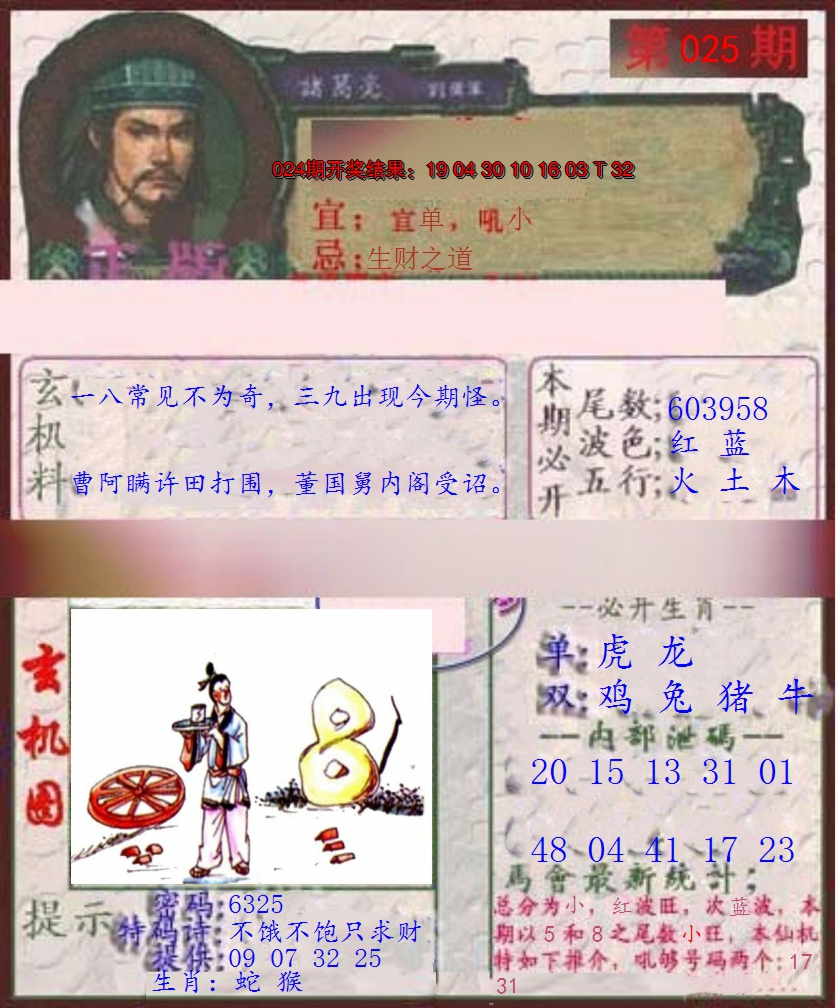 第 025 期
諸葛亮
024期开奖结果：19 04 30 10 16 03 T 32
宜：宜单，吼小
忌：生财之道
正版
玄机料
一八常见不为奇，三九出现今期怪。
曹阿瞒许田打围，董国舅内阁受诏。
本期必开
尾数；603958
波色；红 蓝
五行；火 土 木
玄机图
8
--必开生肖--
单：虎 龙
双：鸡 兔 猪 牛
一一内部泄碼一一
20 15 13 31 01
48 04 41 17 23
馬會最新统計；
总分为小，红波旺，次蓝波，本
期以5和8之尾数小旺，本仙机
特如下推介，吼够号码两个：17
31
提示
密码：6325
特码诗：不饿不饱只求财
提供：09 07 32 25
生肖：蛇 猴